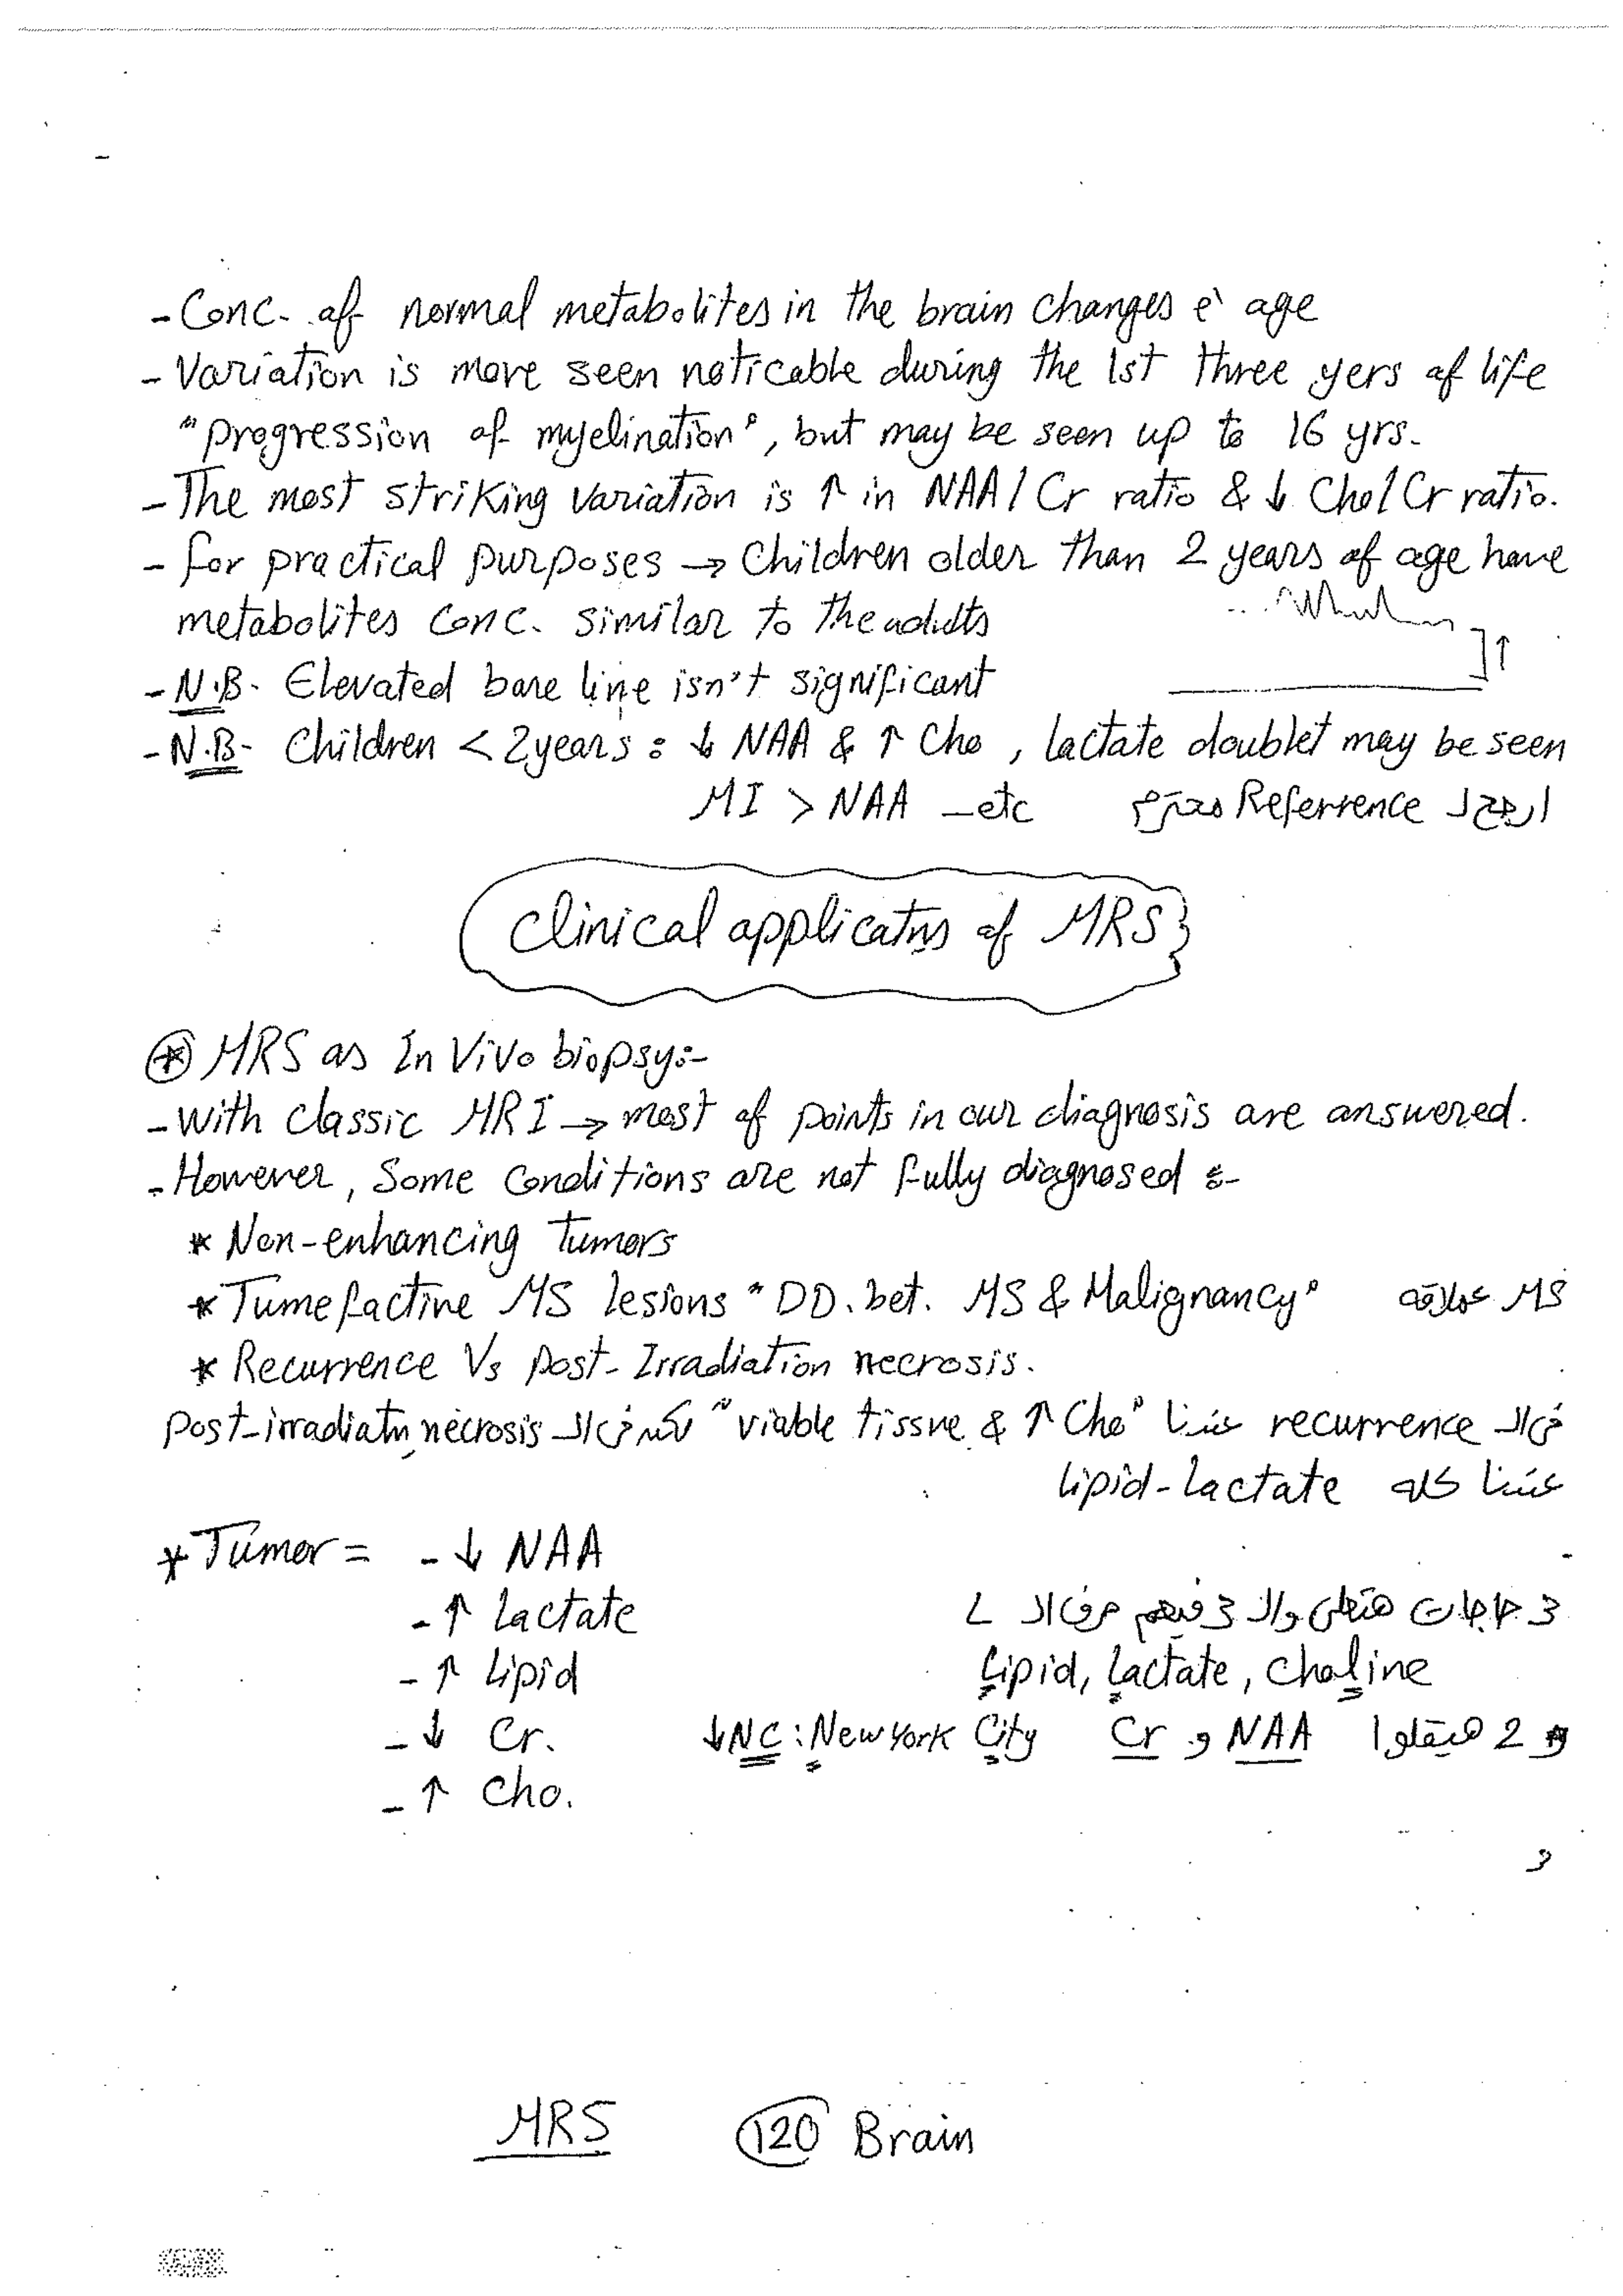 - Conc. of normal metabolites in the brain changes ē age
- Variation is more seen noticable during the 1st three yers of life
"progression of myelination", but may be seen up to 16 yrs.
- The most striking variation is ↑ in NAA/Cr ratio & ↓ Cho/Cr ratio.
- for practical purposes → Children older than 2 years of age have
metabolites conc. similar to the adults
- N.B- Elevated base line isn't significant
- N.B- Children < 2years : ↓ NAA & ↑ Cho , lactate doublet may be seen
MI > NAA - etc ارجع لـ Referrence محترم
Clinical applicatns of MRS
* MRS as In Vivo biopsy:-
- With classic MRI → most of points in our diagnosis are answered.
- However, Some Conditions are not fully diagnosed :-
* Non-enhancing Tumors
* Tumefactive MS lesions "DD. bet. MS & Malignancy" MS عملاقة
* Recurrence Vs post-Irradiation necrosis.
في الـ recurrence عندنا "viable tissue & ↑ Cho" لكن في الـ post-irradiatn necrosis
عندنا كله lipid-lactate
* Tumor = - ↓ NAA
- ↑ Lactate 3 حاجات هتعلى والـ 3 فيهم حرف الـ L
- ↑ Lipid Lipid, Lactate, choline
- ↓ Cr. و 2 هيقلوا NAA و Cr ↓NC : New York City
- ↑ Cho.
3
MRS 120 Brain